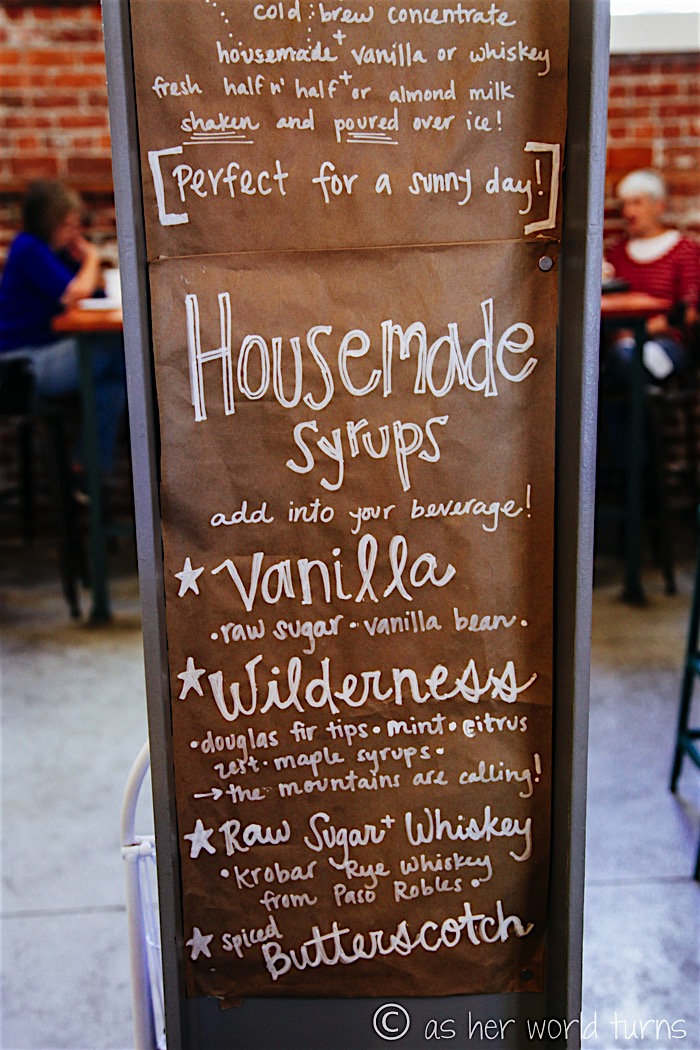 cold brew concentrate
housemade+ vanilla or whiskey
fresh half n' half+ or almond milk
shaken and poured over ice!
[Perfect for a sunny day!]
Housemade
syrups
add into your beverage!
★ Vanilla
•raw sugar • vanilla bean•
★ Wilderness
•douglas fir tips • mint • citrus
zest • maple syrups •
→ the mountains are calling!
★ Raw Sugar+ Whiskey
•Krobar Rye Whiskey
from Paso Robles•
★ spiced Butterscotch
© as her world turns